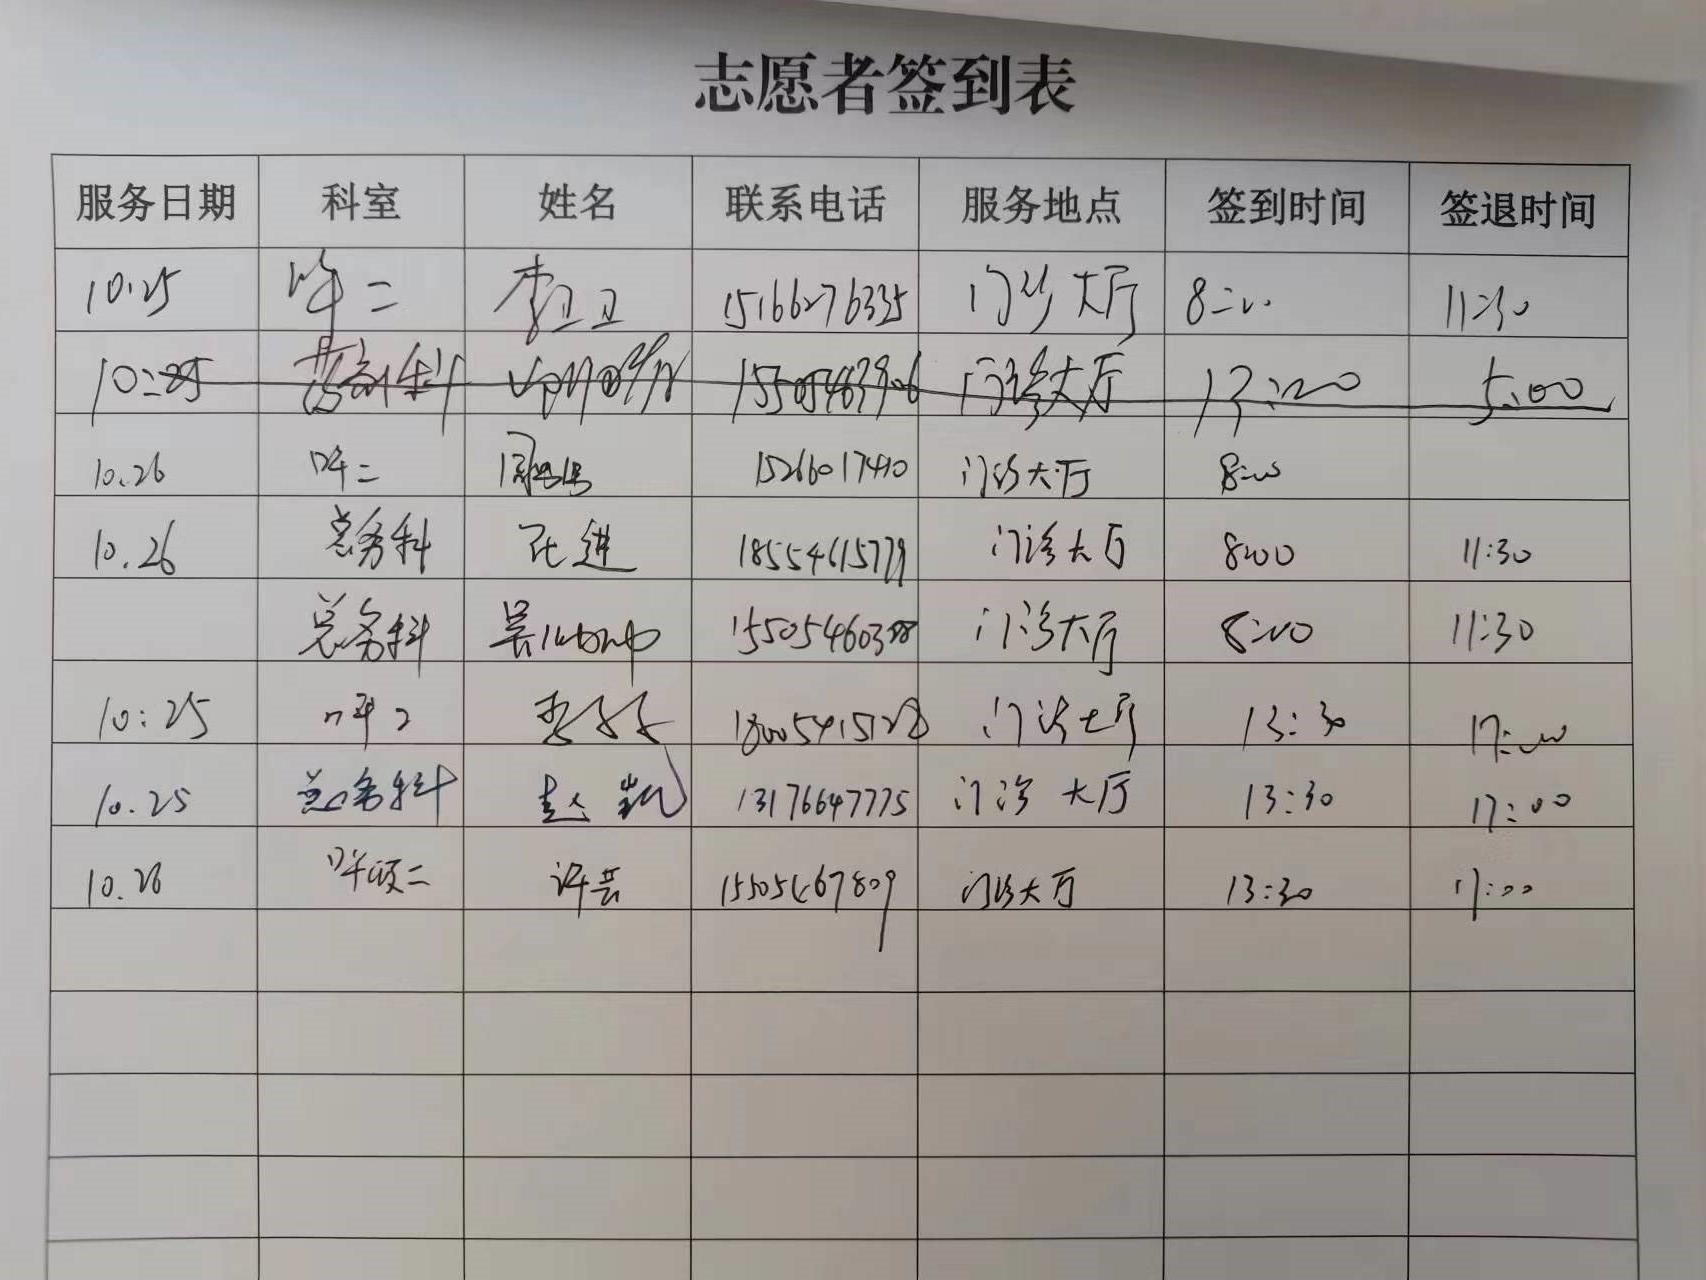 志愿者签到表
服务日期 科室 姓名 联系电话 服务地点 签到时间 签退时间
10.25 呼二 李卫卫 15166276335 门诊大厅 8:00 11:30
10:25 门诊大厅 5:00
10.26 呼二 15266017410 门诊大厅 8:00
10.26 总务科 张进 18554615779 门诊大厅 8:00 11:30
总务科 吴 门诊大厅 8:00 11:30
10:25 呼二 18005415128 门诊大厅 13:30 17:00
10.25 总务科 赵凯 13176647775 门诊大厅 13:30 17:00
10.26 呼吸二 许芸 15505467809 门诊大厅 13:30 17:00